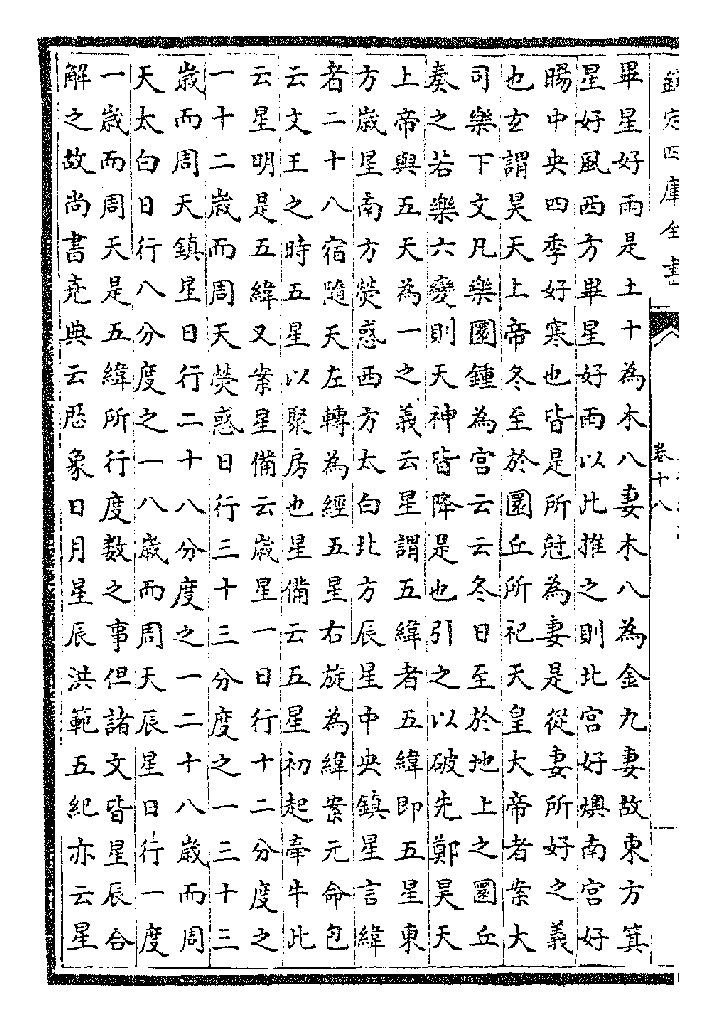 欽定四庫全書
卷十八
畢星好雨是土十為木八妻木八為金九妻故東方箕
星好風西方畢星好雨以此推之則北宮好燠南宮好
暘中央四季好寒也皆是所尅為妻是從妻所好之義
也玄謂昊天上帝冬至於圜丘所祀天皇大帝者案大
司樂下文凡樂圜鍾為宮云云冬日至於地上之圜丘
奏之若樂六變則天神皆降是也引之以破先鄭昊天
上帝與五天為一之義云星謂五緯者五緯即五星東
方歲星南方熒惑西方太白北方辰星中央鎮星言緯
者二十八宿隨天左轉為經五星右旋為緯案元命包
云文王之時五星以聚房也星備云五星初起牽牛此
云星明是五緯又案星備云歲星一日行十二分度之
一十二歲而周天熒惑日行三十三分度之一三十三
歲而周天鎮星日行二十八分度之一二十八歲而周
天太白日行八分度之一八歲而周天辰星日行一度
一歲而周天是五緯所行度數之事但諸文皆星辰合
解之故尚書堯典云厯象日月星辰洪範五紀亦云星